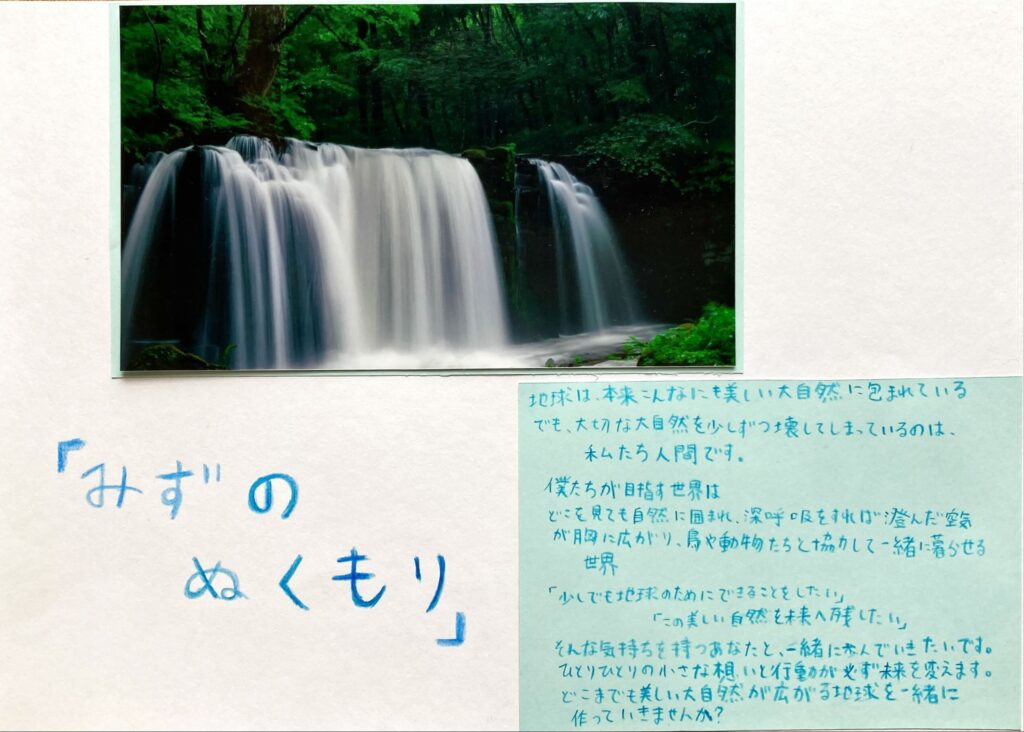 「みずの
ぬくもり」
地球は、本来こんなにも美しい大自然に包まれている
でも、大切な大自然を少しずつ壊してしまっているのは、
私たち人間です。
僕たちが目指す世界は
どこを見ても自然に囲まれ、深呼吸をすれば澄んだ空気
が胸に広がり、鳥や動物たちと協力して一緒に暮らせる
世界
「少しでも地球のためにできることをしたい」
「この美しい自然を未来へ残したい」
そんな気持ちを持つあなたと、一緒に歩んでいきたいです。
ひとりひとりの小さな想いと行動が必ず未来を変えます。
どこまでも美しい大自然が広がる地球を一緒に
作っていきませんか?